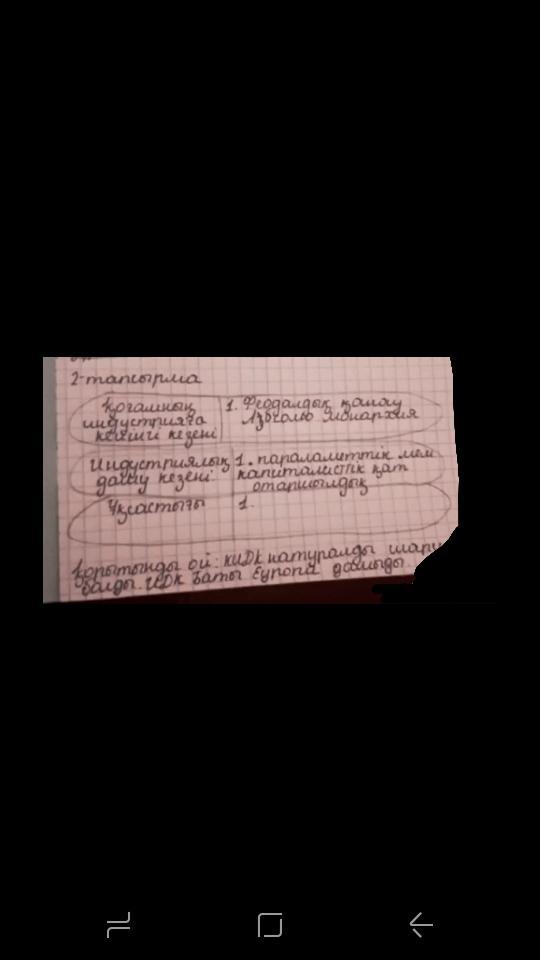 2-тапсырма
Қоғамның
индустрияға
кейінгі кезені
1. Феодалдық қанау
Абсолю монархия
Индустриялық
даму кезені.
1. параламеттік мем
капиталистік қат
отаршылдық
Ұқсастығы
1.
Қорытынды ой: КИДК натуралды шару
болды. ИДК Батыс Еуропа дамыды.